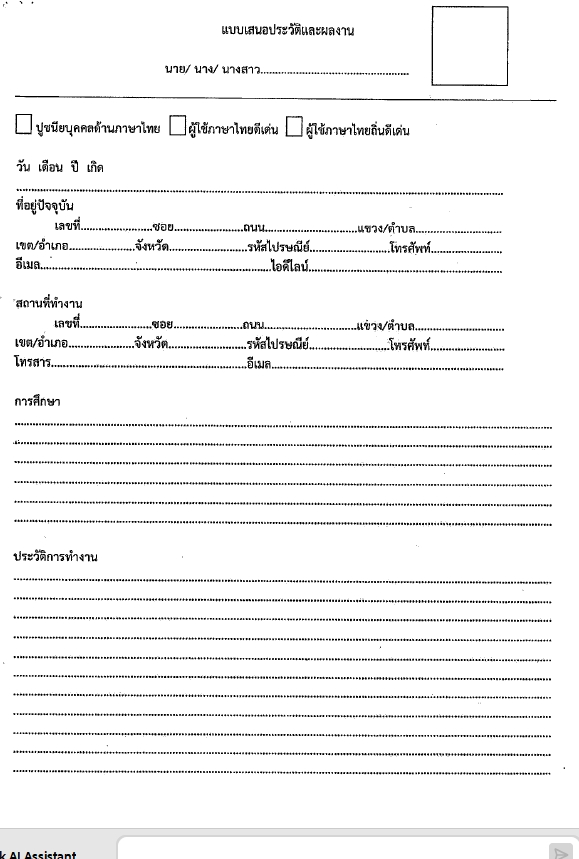 แบบเสนอประวัติและผลงาน
นาย/ นาง/ นางสาว................................................
ปูชนียบุคคลด้านภาษาไทย ผู้ใช้ภาษาไทยดีเด่น ผู้ใช้ภาษาไทยถิ่นดีเด่น
วัน เดือน ปี เกิด
................................................................................................
ที่อยู่ปัจจุบัน
เลขที่....................ซอย.........................ถนน.........................แขวง/ตำบล........................
เขต/อำเภอ..................จังหวัด.....................รหัสไปรษณีย์.....................โทรศัพท์...................
อีเมล...............................................................ไอดีไลน์.....................................................
สถานที่ทำงาน
เลขที่....................ซอย...................ถนน.........................แขวง/ตำบล........................
เขต/อำเภอ..................จังหวัด.....................รหัสไปรษณีย์.....................โทรศัพท์...................
โทรสาร.....................................................อีเมล...............................................................
การศึกษา
................................................................................................
................................................................................................
................................................................................................
................................................................................................
................................................................................................
................................................................................................
ประวัติการทำงาน
................................................................................................
................................................................................................
................................................................................................
................................................................................................
................................................................................................
................................................................................................
................................................................................................
................................................................................................
................................................................................................
................................................................................................
................................................................................................
k AI Assistant